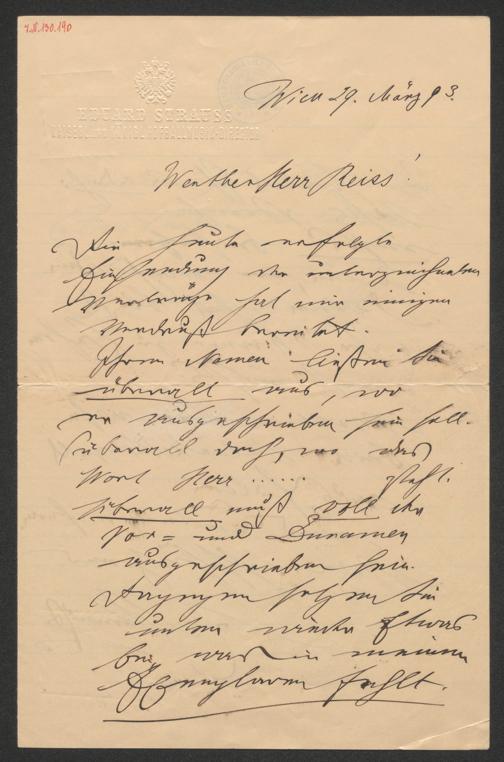 I.N.130.190
EDUARD STRAUSS
Wien 29. März 93.
Werther Herr Reiss!
Die heute erfolgte
Einsendung der unterzeichneten
Verträge hat mir einigen
Verdruß bereitet.
Ihren Namen ließen Sie
überall aus, wo
er ausgeschrieben sein soll.
Überall doch, wo das
Wort Herr ...... steht.
Überall muß voll ihr
Vor= und Zunamen
ausgeschrieben sein.
Dagegen setzen Sie
unten wieder Etwas
bei, was in meinem
Exemplaren fehlt.